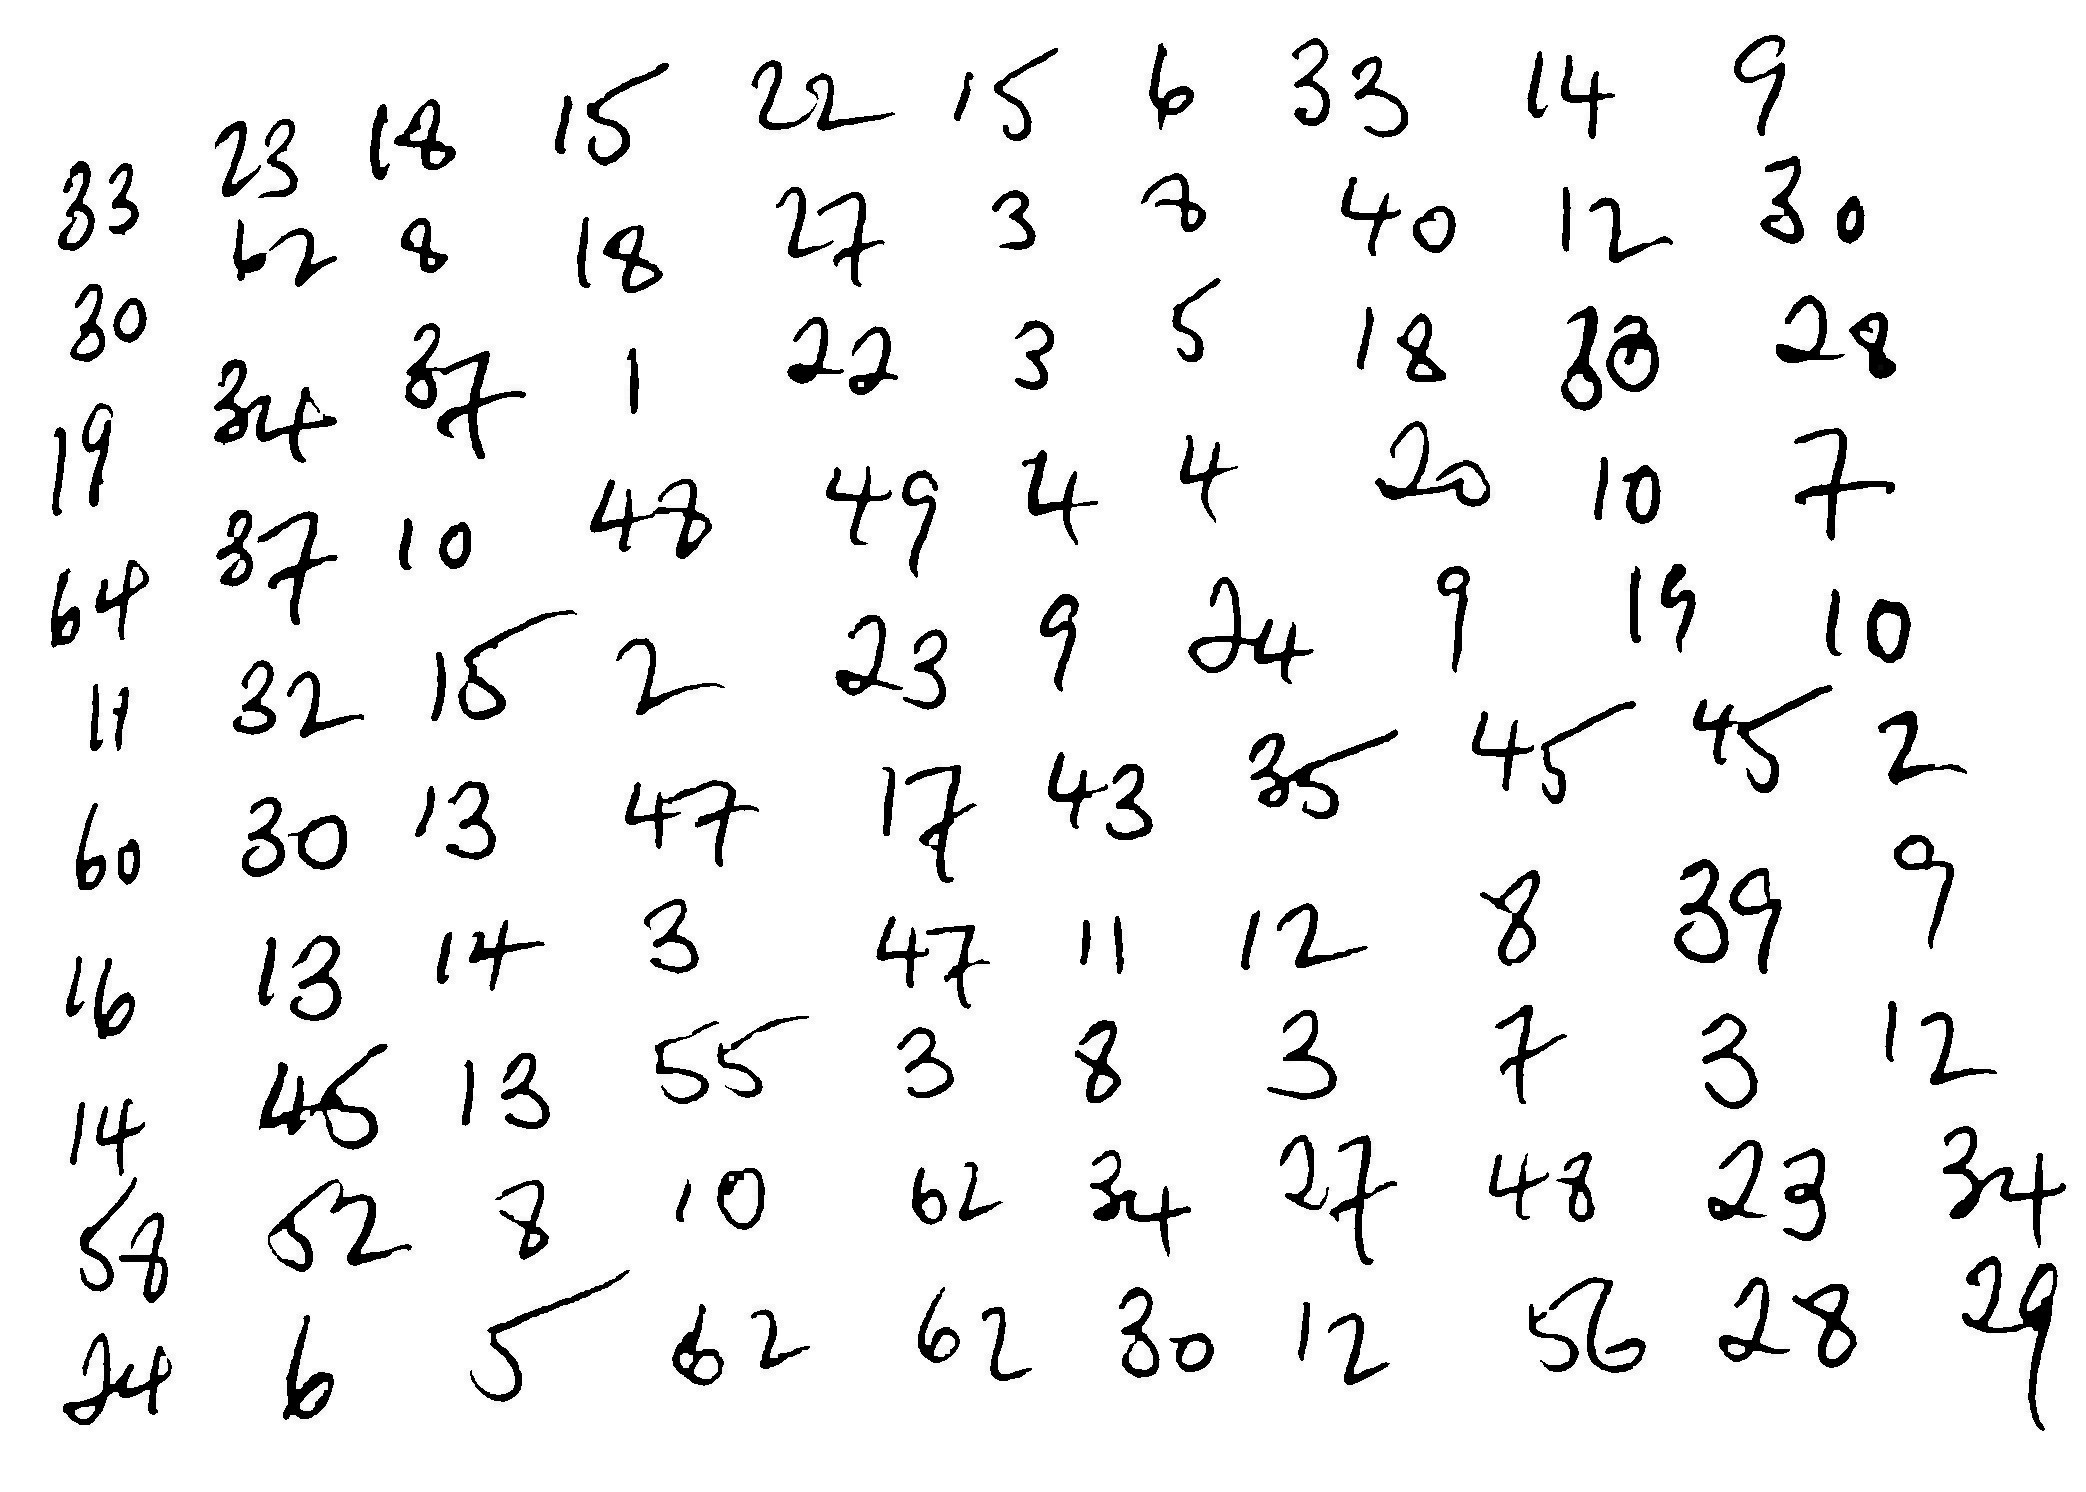 33 23 18 15 22 15 6 33 14 9
30 62 8 18 27 3 8 40 12 30
19 34 37 1 22 3 5 18 33 28
64 37 10 48 49 4 4 20 10 7
11 32 15 2 23 9 24 9 19 10
60 30 13 47 17 43 35 45 45 2
16 13 14 3 47 11 12 8 39 9
14 45 13 55 3 8 3 7 3 12
58 52 8 10 62 34 27 48 23 34
24 6 5 62 62 30 12 56 28 29